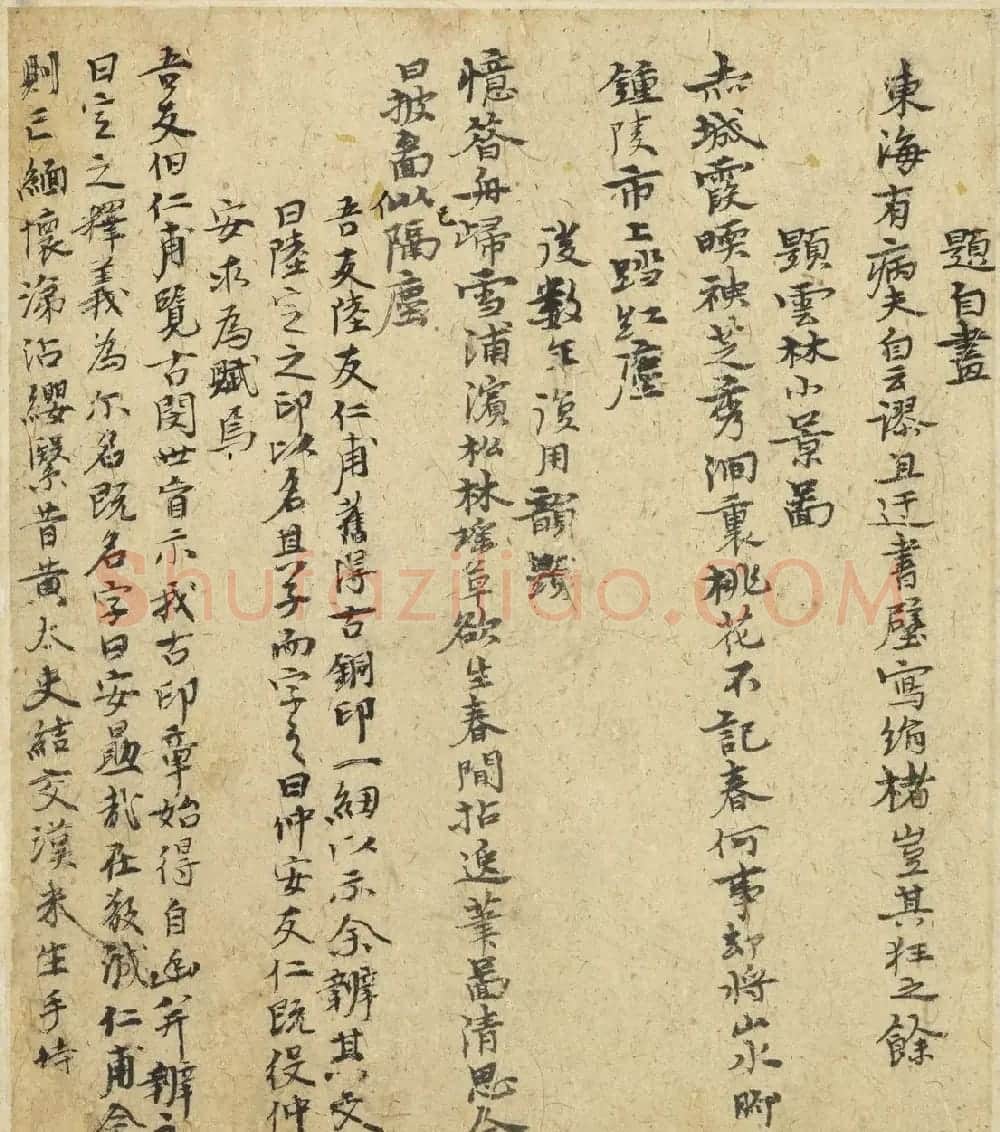 題自畫
東海有病夫自云謬且迂書壁寫絹楮豈其狂之餘
題雲林小景啚
赤城霞暎袂芝秀澗裏桃花不記春何事却將山水脚
鍾陵市上踏紅塵
後数年復用韻題
憶昔舟歸雪浦濱松林瑤草欲生春間拈退筆啚清思今
日披啚似已隔塵
吾友陸友仁甫舊得古銅印一紐以示余辨其文
曰陸定之印以名其子而字之曰仲安友仁既役仲
安求為賦焉
吾友伯仁甫覽古閔世盲示我古印章始得自幽并辨之
曰定之釋義為尔名既名字曰安勗哉在教誠仁甫今
則亡緬懷涕沾纓繄昔黄太史結交漢米生手持
Shufaziliao.COM